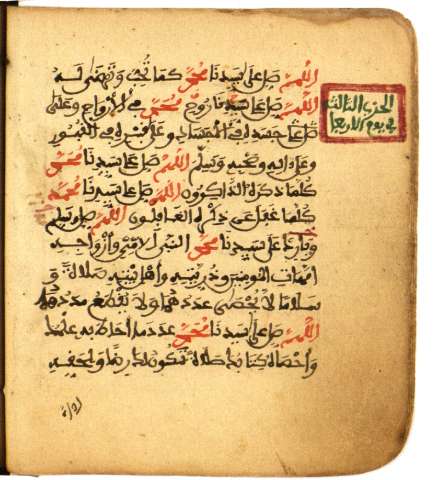 اللهم صل على سيدنا محمد كما تحب وترضى له
اللهم صل على سيدنا روح محمد في الارواح وعلى
صل على جسده في الاجساد وعلى قبره في القبور
وعلى ءاله وصحبه وسلم اللهم صل على سيدنا محمد
كلما ذكره الذاكرون اللهم صل على سيدنا محمد
كلما غفل عن ذكره الغافلون اللهم صل وسلم
وبارك على سيدنا محمد النبي الامي وأزواجه
امهات المومنين وذريته وأهل بيته صلاة و
سلاما لا يحصى عددهما ولا ينقطع مددهما
اللهم صل على سيدنا محمد عدد ما أحاط به علمك
وأحصاه كتابك صلاة تكون لك رضا ولحقه
الحزب الثالث
في يوم الاربعا